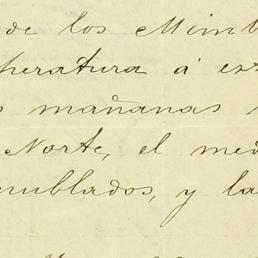 de los Mimb
peratura á es
s mañanas
Norte, el med
nublados, y la